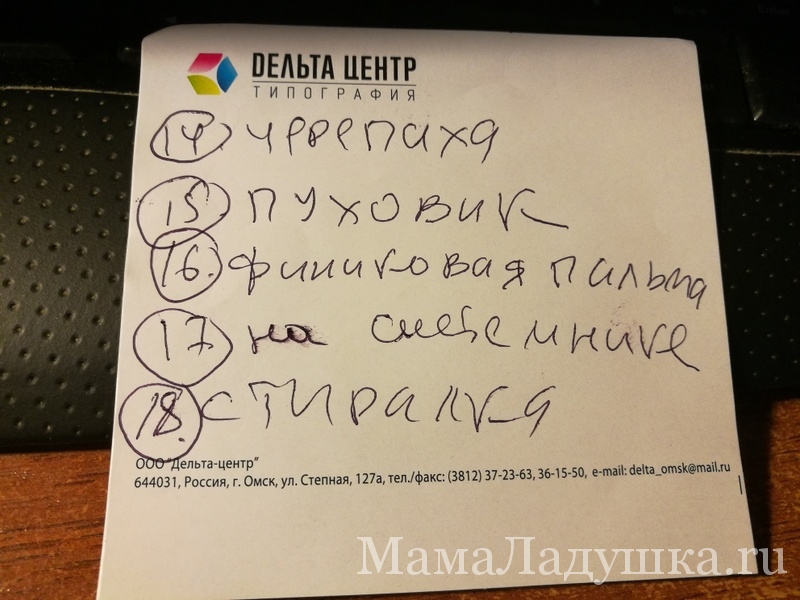 DЕЛЬТА ЦЕНТР
ТИПОГРАФИЯ
14 черепаха
15 пуховик
16. финиковая пальма
17 на съёмнике
18. стиралка
ООО "Дельта-центр"
644031, Россия, г. Омск, ул. Степная, 127а, тел./факс: (3812) 37-23-63, 36-15-50, e-mail: delta_omsk@mail.ru
МамаЛадушка.ru